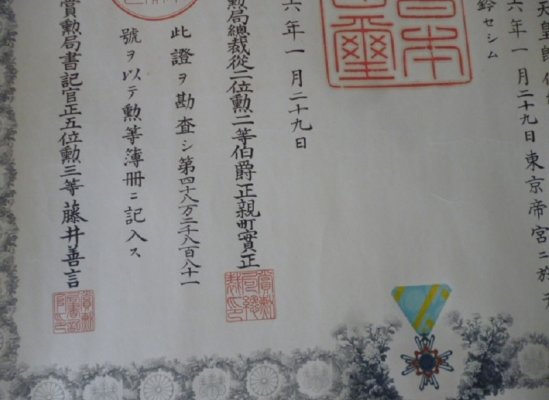 天皇
六年一月二十九日東京帝宮ニ於テ
鈴セシム
六年一月二十九日
勲局總裁從二位勲二等伯爵正親町實正
此證ヲ勘査シ第四十八万二千八百八十一
號ヲ以テ勲等簿冊ニ記入ス
賞勲局書記官正五位勲三等藤井善言